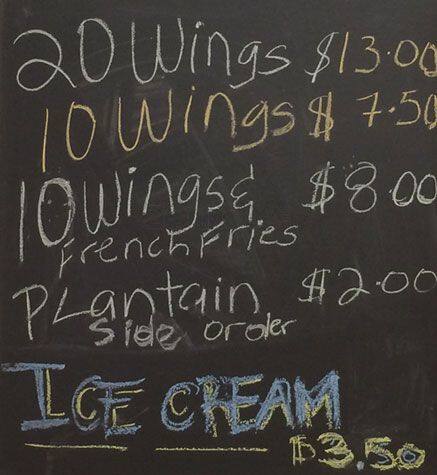 20 Wings $13.00
10 Wings $ 7.50
10 Wings & $8.00
French Fries
PLantain $2.00
Side order
ICE CREAM
$3.50